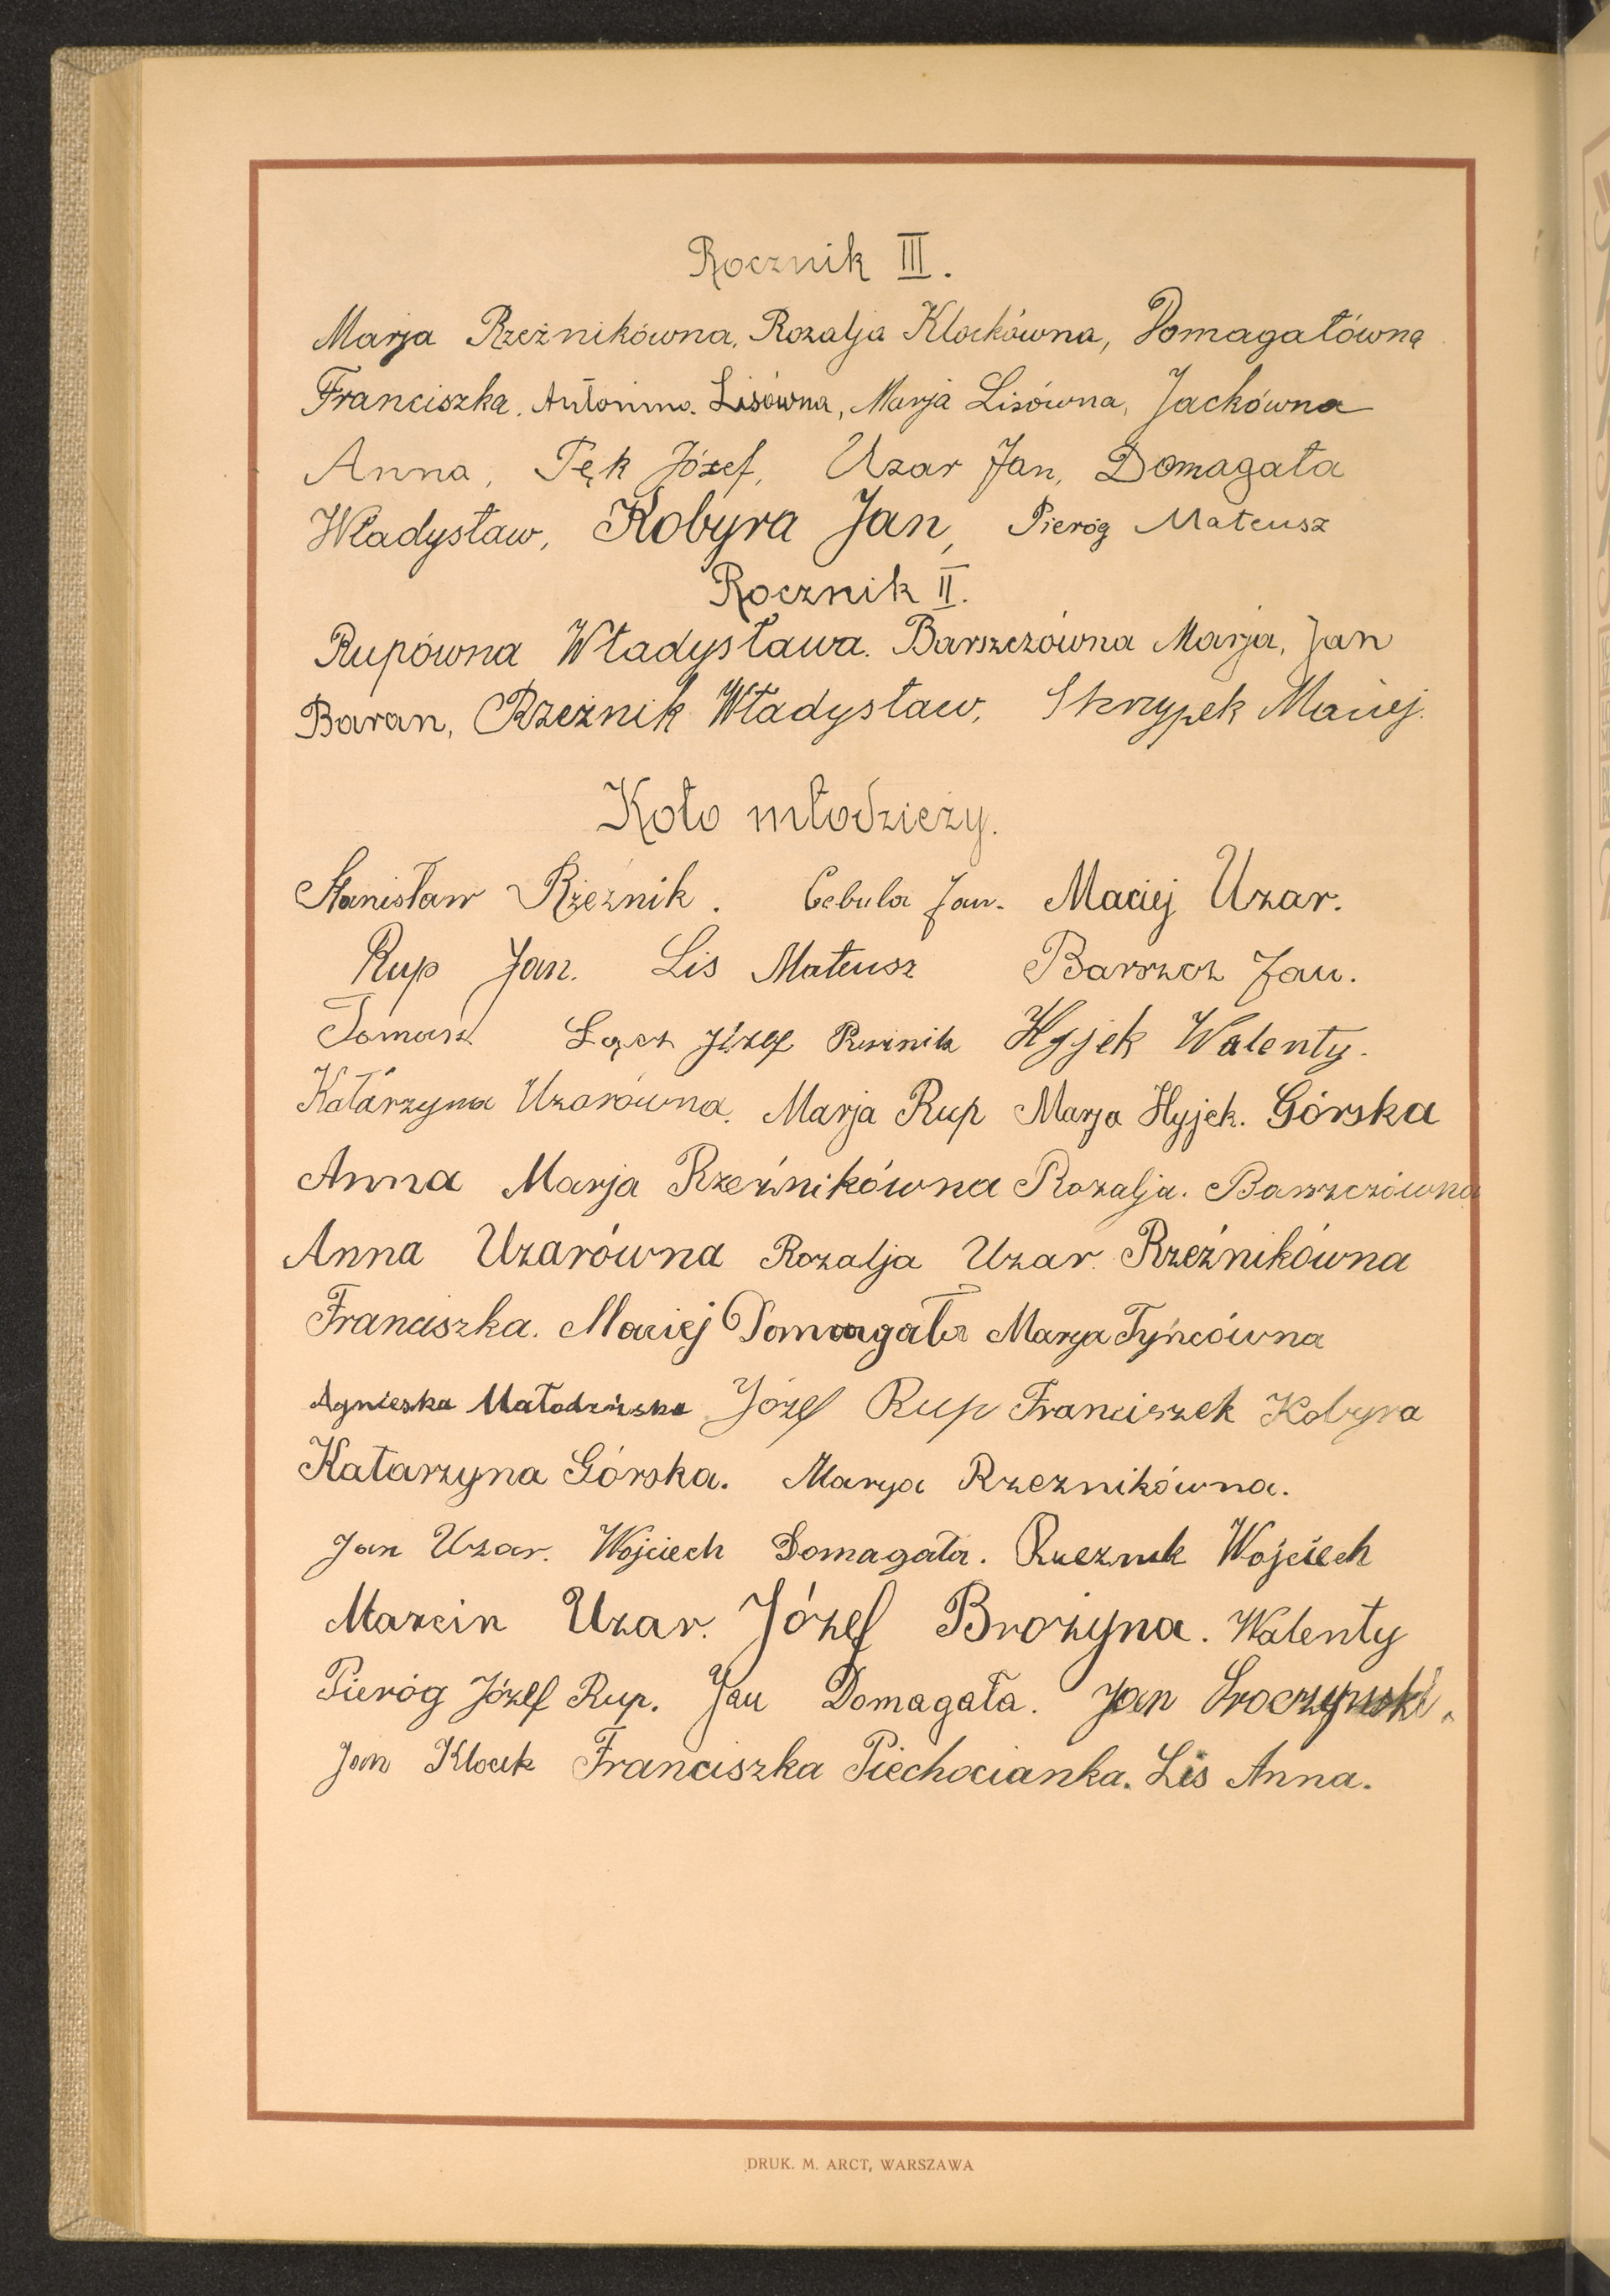 Rocznik III.
Marja Rzeźnikówna, Rozalja Klockówna, Domagałówna
Franciszka, Antonina Lisówna, Marja Lisówna, Jackówna
Anna, Pęk Józef, Uzar Jan, Domagała
Władysław, Kobyra Jan, Pieróg Mateusz
Rocznik II.
Rupówna Władysława. Barszczówna Marja, Jan
Baran, Rzeźnik Władysław, Skrzypek Maciej.
Koło młodzieży.
Stanisław Rzeźnik. Cebula Jan. Maciej Uzar.
Rup Jan. Lis Mateusz Barszcz Jan.
Tomasz Łącz Józef Rzeźnik Hyjek Walenty.
Katarzyna Uzarówna. Marja Rup Marja Hyjek. Górska
Anna Marja Rzeźnikówna Rozalja. Barszczówna
Anna Uzarówna Rozalja Uzar Rzeźnikówna
Franciszka. Maciej Domagała Marja Tyńcówna
Agnieska Małodzińska Józef Rup Franciszek Kobyra
Katarzyna Górska. Marya Rzeznikówna.
Jan Uzar. Wojciech Domagała. Rzeznik Wojciech
Marcin Uzar. Józef Brożyna. Walenty
Pieróg Józef Rup. Jan Domagała. Jan Sroczyński.
Jan Klocek Franciszka Piechocianka. Lis Anna.
DRUK. M. ARCT, WARSZAWA